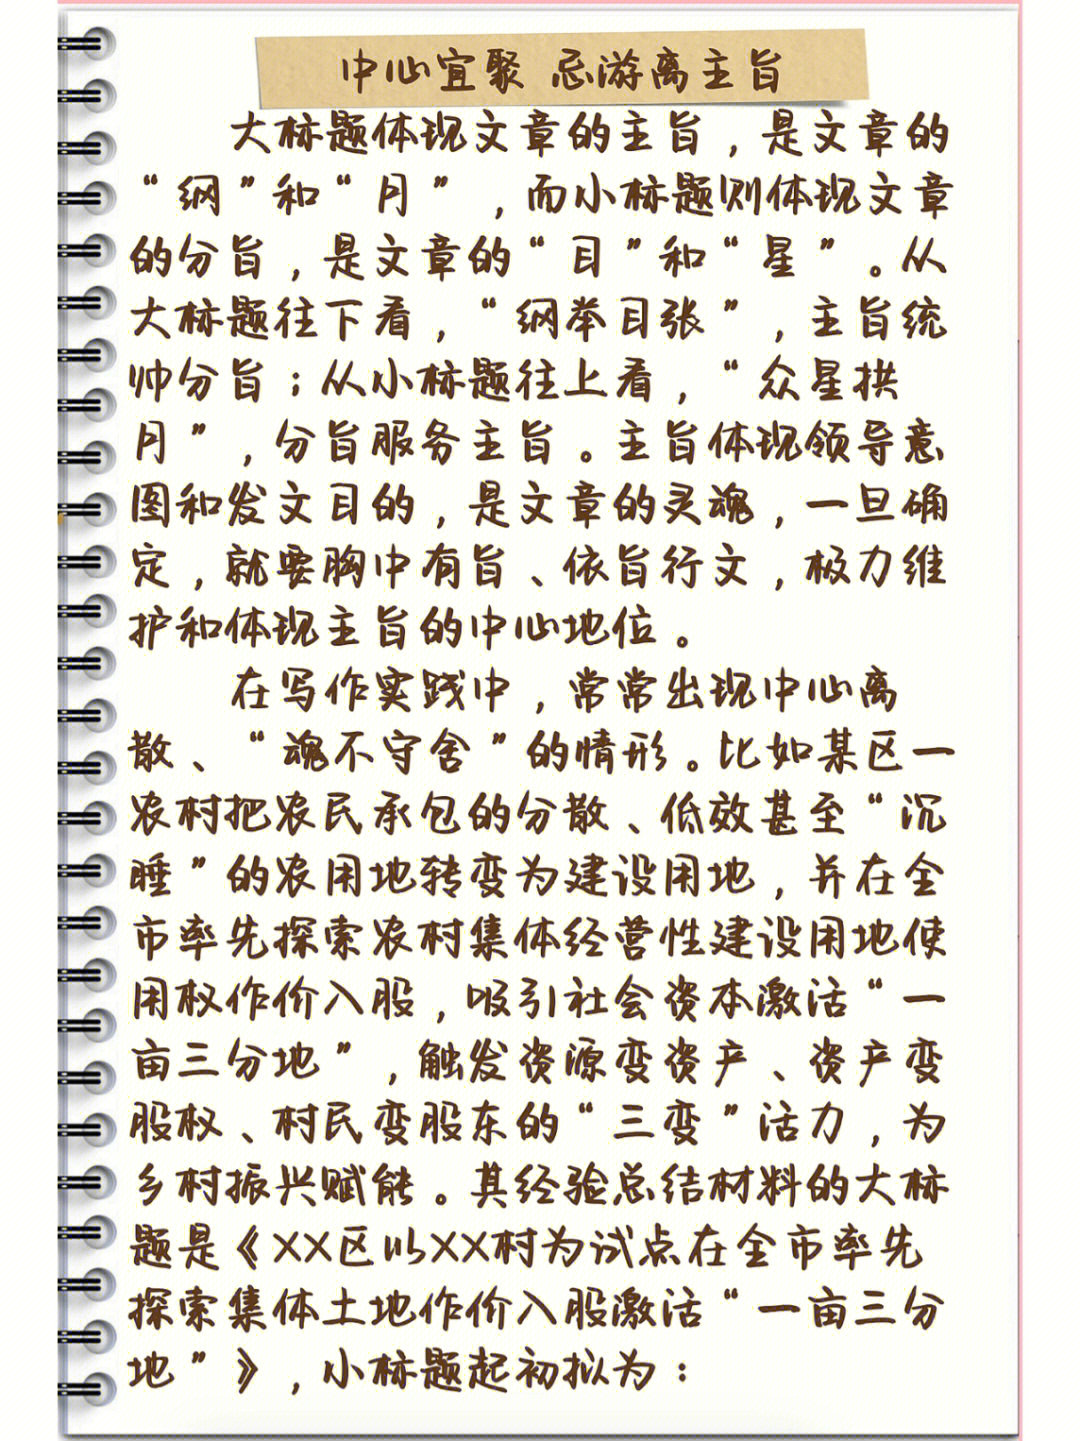 中心宜聚 忌游离主旨
大标题体现文章的主旨，是文章的
“纲”和“月”，而小标题则体现文章
的分旨，是文章的“目”和“星”。从
大标题往下看，“纲举目张”，主旨统
帅分旨；从小标题往上看，“众星拱
月”，分旨服务主旨。主旨体现领导意
图和发文目的，是文章的灵魂，一旦确
定，就要胸中有旨、依旨行文，极力维
护和体现主旨的中心地位。
在写作实践中，常常出现中心离
散、“魂不守舍”的情形。比如某区一
农村把农民承包的分散、低效甚至“沉
睡”的农用地转变为建设用地，并在全
市率先探索农村集体经营性建设用地使
用权作价入股，吸引社会资本激活“一
亩三分地”，触发资源变资产、资产变
股权、村民变股东的“三变”活力，为
乡村振兴赋能。其经验总结材料的大标
题是《XX区以XX村为试点在全市率先
探索集体土地作价入股激活“一亩三分
地”》，小标题起初拟为：